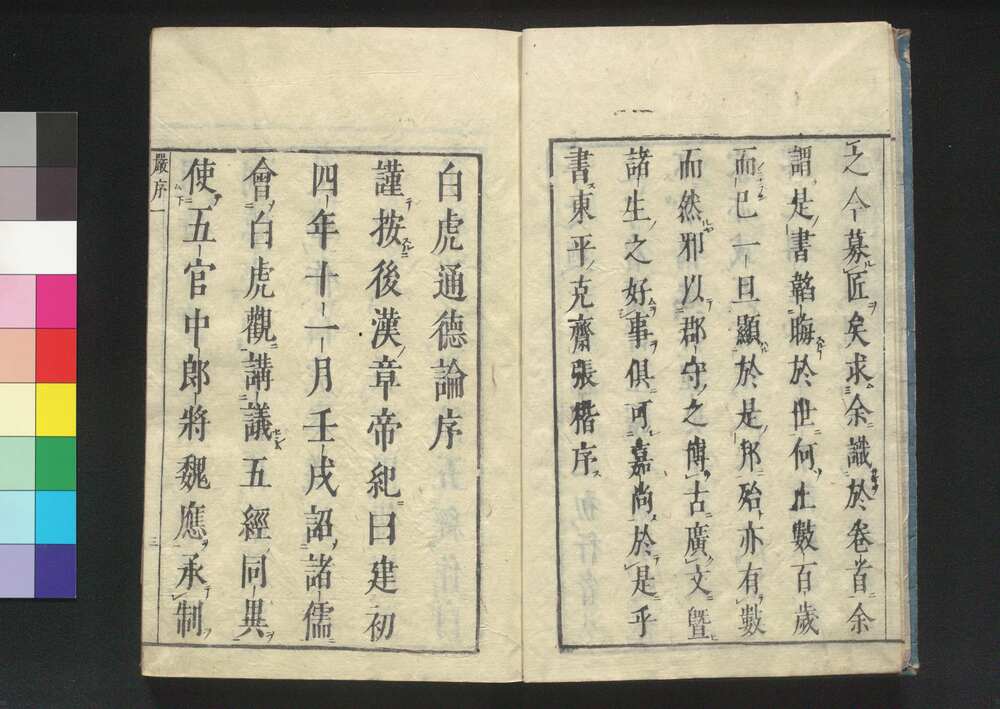 之今募匠矣求余識於卷首余
謂是書韜晦於世何止數百歲
而已一旦顯於是邦殆亦有數
而然邪以郡守之博古廣文曁
諸生之好事俱可嘉尚於是乎
書東平克齋張楷序
白虎通德論序
謹按後漢章帝紀曰建初
四年十一月壬戌詔諸儒
會白虎觀講議五經同異
使五官中郎將魏應承制
嚴序一